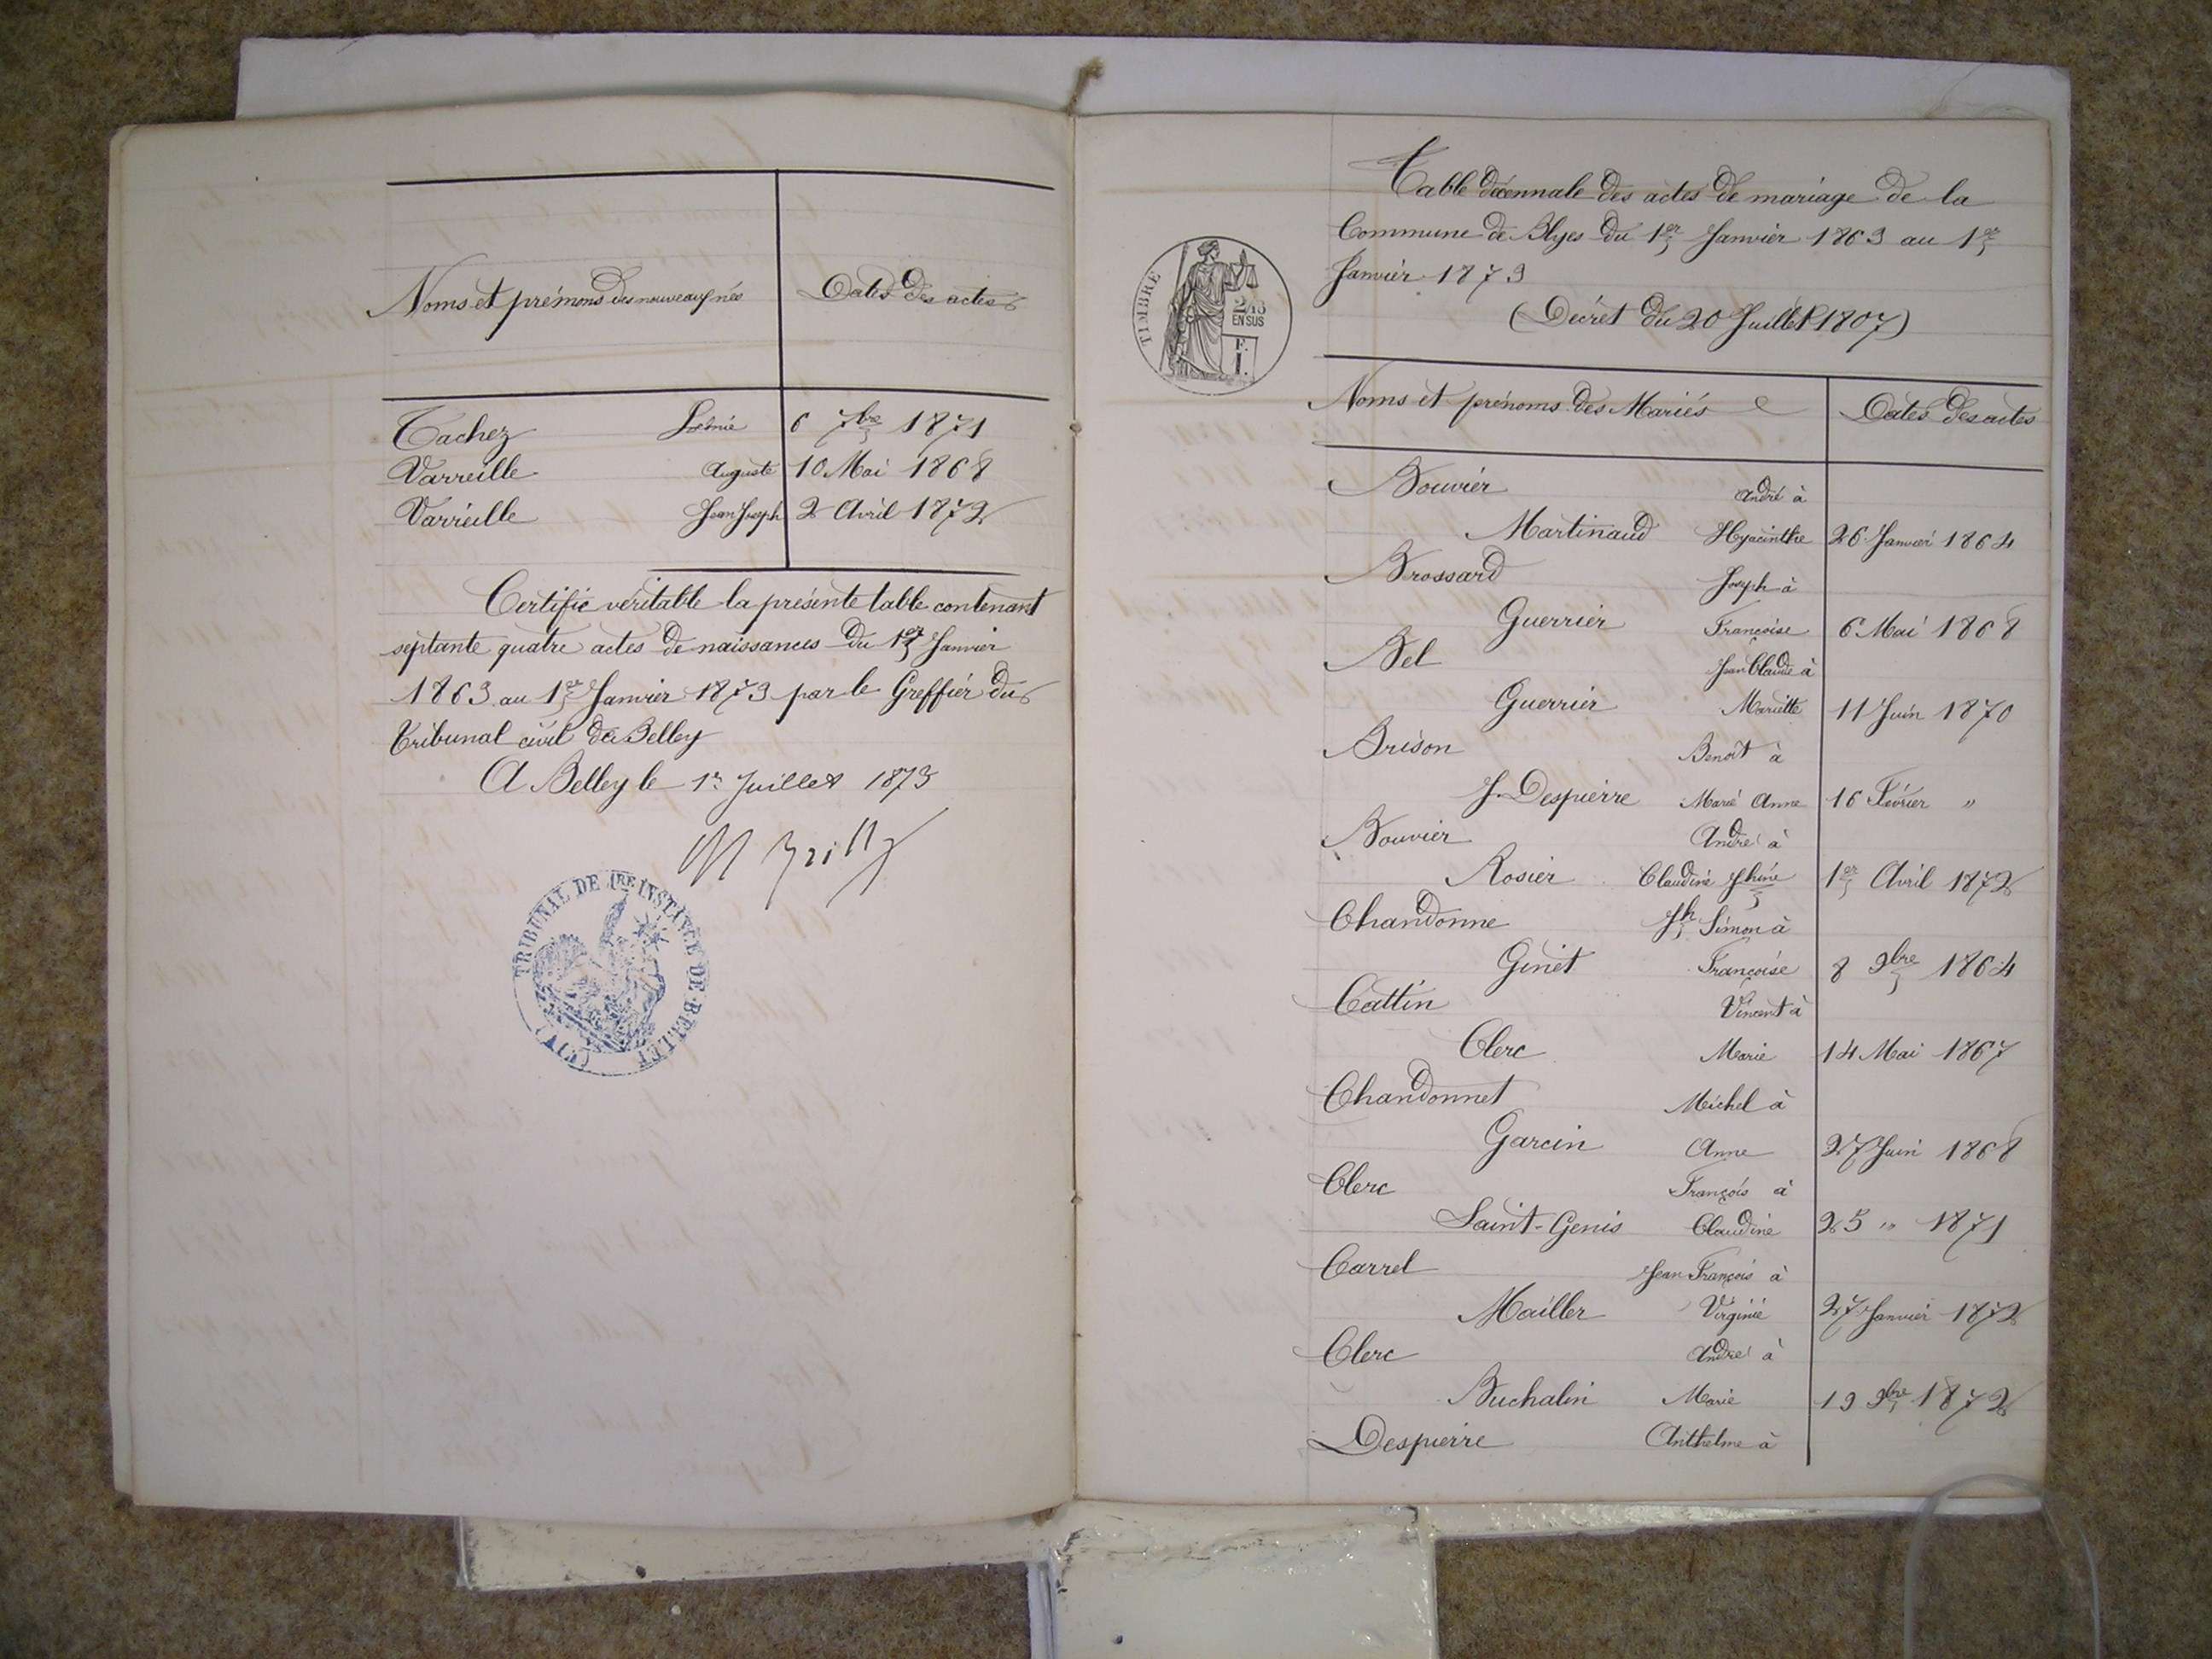 Noms et prénoms des nouveaux nés
Dates des actes
Tachez 6 7bre 1871
Varreille Auguste 10 Mai 1868
Varreille Jean Joseph 2 Avril 1872
Certifié véritable la présente table contenant
septante quatre actes de naissances du 1er Janvier
1863 au 1er Janvier 1873 par le Greffier du
Tribunal civil de Belley
A Belley le 1er Juillet 1873
TRIBUNAL DE 1RE INSTANCE DE BELLEY
(CIVIL)
Table décennale des actes de mariage de la
Commune de Blyes du 1er Janvier 1863 au 1er
Janvier 1873
(Décret du 20 Juillet 1807)
TIMBRE
2/10
EN SUS
F.
1.
Noms et prénoms des Mariés
Dates des actes
Bouvier André à
Martinaud Hyacinthe 26 Janvier 1864
Brossard Joseph à
Guerrier Françoise 6 Mai 1868
Bel Jean Claude à
Guerrier Mariette 11 Juin 1870
Brison Benoît à
J. Despierre Marie Anne 16 Février "
Bouvier André à
Rosier Claudine Jhine 1er Avril 1872
Chandonne Jh Simon à
Ginet Françoise 8 9bre 1864
Cattin Vincent à
Clerc Marie 14 Mai 1867
Chandonnet Michel à
Garcin Anne 27 Juin 1868
Clerc François à
Saint-Genis Claudine 25 " 1871
Carrel Jean François à
Mailler Virginie 27 Janvier 1872
Clerc André à
Buchalin Marie 19 9bre 1872
Despierre Anthelme à